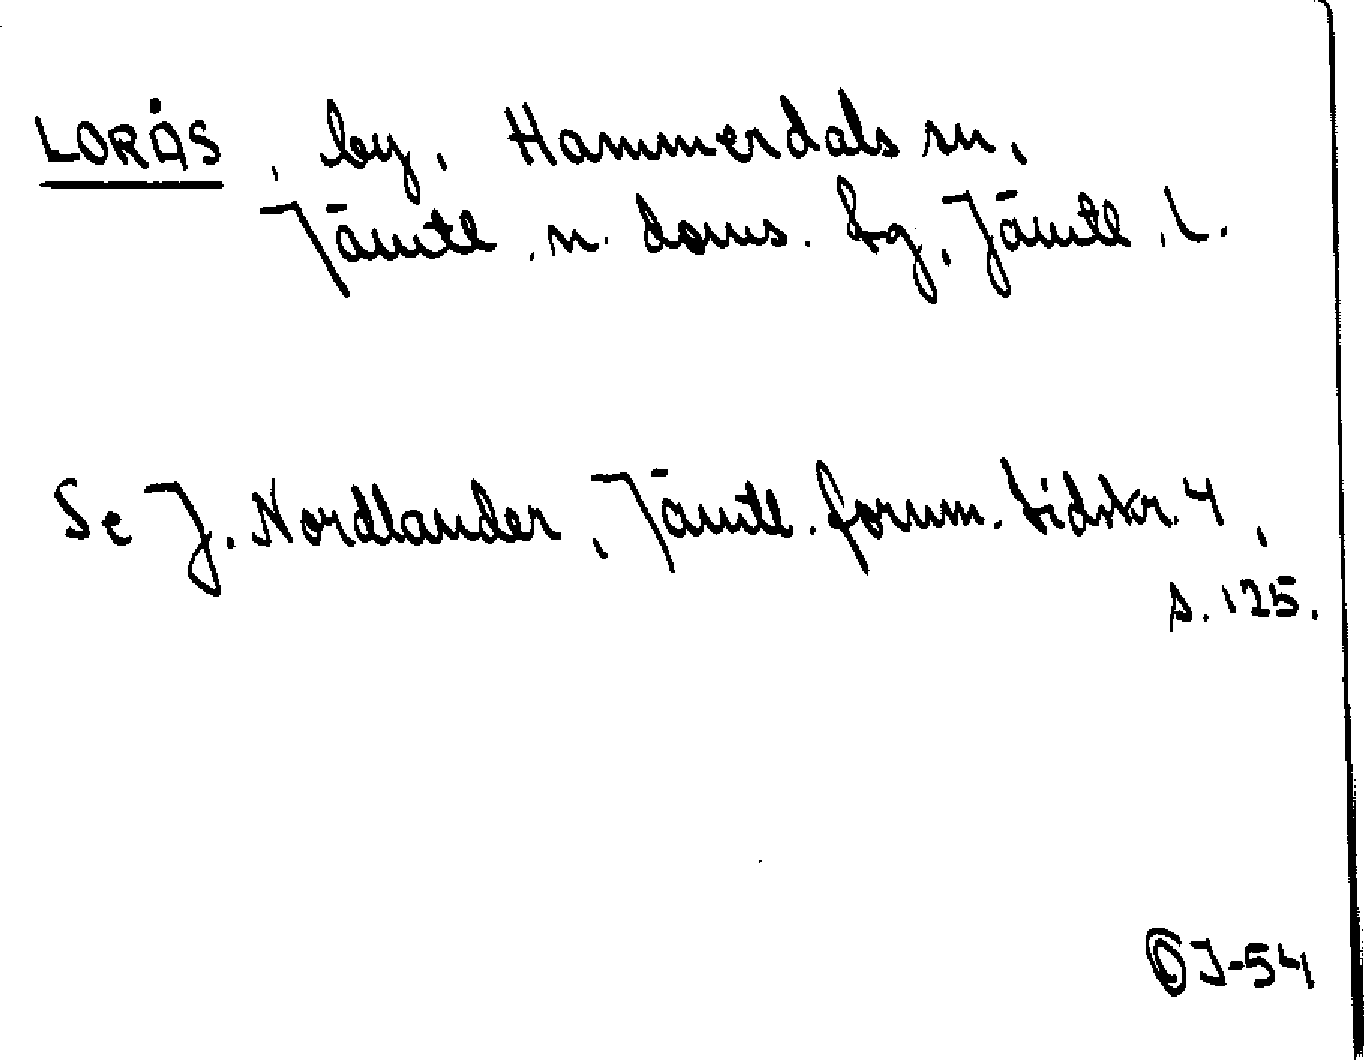 LORÅS, by, Hammerdals sn,
Jämtl. n. doms. tg, Jämtl. l.
Se J. Nordlander, Jämtl. fornm. tidskr. 4,
s. 125.
ÖJ-54